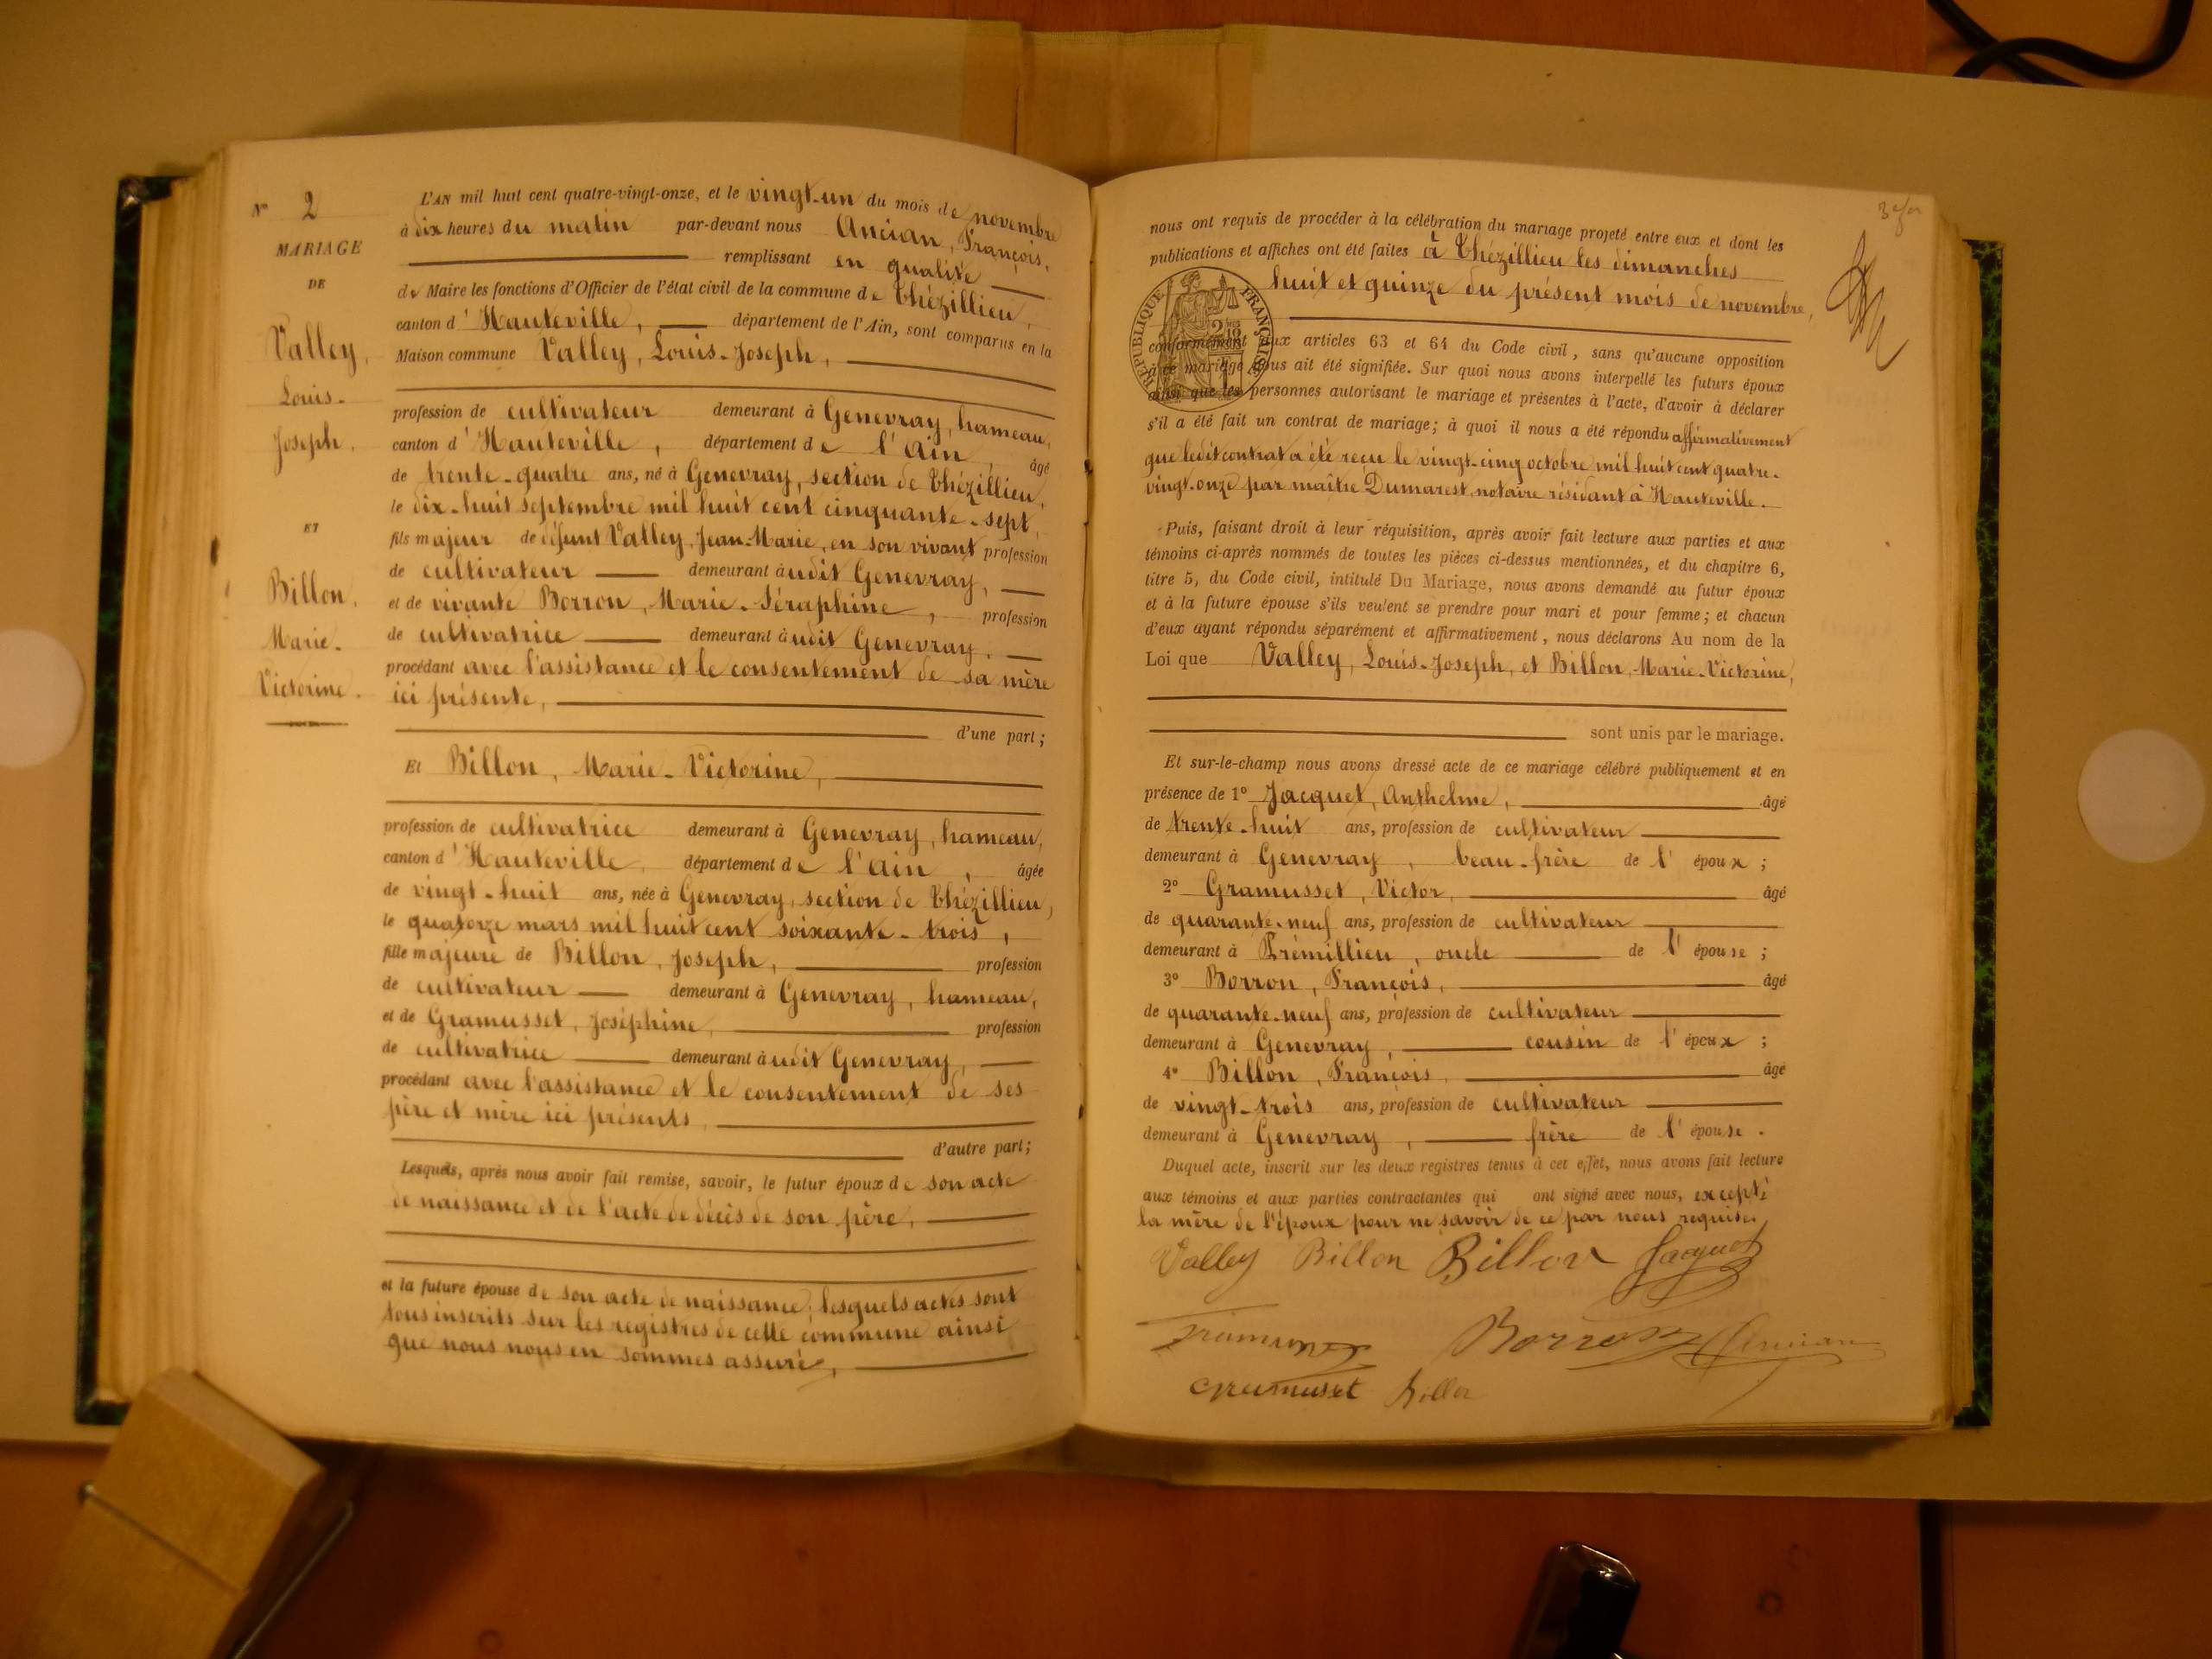 N° 2
MARIAGE
DE
Valley,
Louis-
Joseph.
ET
Billon,
Marie-
Victorine.
L'AN mil huit cent quatre-vingt-onze, et le vingt-un du mois de novembre
à dix heures du matin par-devant nous Ancian, François,
remplissant en qualité
de Maire les fonctions d'Officier de l'état civil de la commune de Thézillieu,
canton d'Hauteville, département de l'Ain, sont comparus en la
Maison commune Valley, Louis-Joseph,
profession de cultivateur demeurant à Genevray, hameau,
canton d'Hauteville, département de l'Ain, âgé
de trente-quatre ans, né à Genevray, section de Thézillieu,
le dix-huit septembre mil huit cent cinquante-sept,
fils majeur de défunt Valley, Jean-Marie, en son vivant profession
de cultivateur demeurant audit Genevray,
et de vivante Borron, Marie-Séraphine, profession
de cultivatrice demeurant audit Genevray,
procédant avec l'assistance et le consentement de sa mère
ici présente,
d'une part;
Et Billon, Marie-Victorine,
profession de cultivatrice demeurant à Genevray, hameau,
canton d'Hauteville, département de l'Ain, âgée
de vingt-huit ans, née à Genevray, section de Thézillieu,
le quatorze mars mil huit cent soixante-trois,
fille majeure de Billon, Joseph, profession
de cultivateur demeurant à Genevray, hameau,
et de Gramusset, Joséphine, profession
de cultivatrice demeurant audit Genevray,
procédant avec l'assistance et le consentement de ses
père et mère ici présents,
d'autre part;
Lesquels, après nous avoir fait remise, savoir, le futur époux de son acte
de naissance et de l'acte de décès de son père,
et la future épouse de son acte de naissance; lesquels actes sont
tous inscrits sur les registres de cette commune ainsi
que nous nous en sommes assuré,
nous ont requis de procéder à la célébration du mariage projeté entre eux et dont les
publications et affiches ont été faites à Thézillieu les dimanches
huit et quinze du présent mois de novembre,
RÉPUBLIQUE FRANÇAISE
conformément aux articles 63 et 64 du Code civil, sans qu'aucune opposition
à ce mariage nous ait été signifiée. Sur quoi nous avons interpellé les futurs époux
ainsi que les personnes autorisant le mariage et présentes à l'acte, d'avoir à déclarer
s'il a été fait un contrat de mariage; à quoi il nous a été répondu affirmativement
que ledit contrat a été reçu le vingt-cinq octobre mil huit cent quatre-
vingt-onze par maître Dumarest, notaire résidant à Hauteville.
Puis, faisant droit à leur réquisition, après avoir fait lecture aux parties et aux
témoins ci-après nommés de toutes les pièces ci-dessus mentionnées, et du chapitre 6,
titre 5, du Code civil, intitulé Du Mariage, nous avons demandé au futur époux
et à la future épouse s'ils veulent se prendre pour mari et pour femme; et chacun
d'eux ayant répondu séparément et affirmativement, nous déclarons Au nom de la
Loi que Valley, Louis-Joseph, et Billon, Marie-Victorine,
sont unis par le mariage.
Et sur-le-champ nous avons dressé acte de ce mariage célébré publiquement et en
présence de 1° Jacquet, Anthelme, âgé
de trente-huit ans, profession de cultivateur
demeurant à Genevray, beau-frère de l'époux;
2° Gramusset, Victor, âgé
de quarante-neuf ans, profession de cultivateur
demeurant à Prémillieu, oncle de l'épouse;
3° Borron, François, âgé
de quarante-neuf ans, profession de cultivateur
demeurant à Genevray, cousin de l'époux;
4° Billon, François, âgé
de vingt-trois ans, profession de cultivateur
demeurant à Genevray, frère de l'épouse.
Duquel acte, inscrit sur les deux registres tenus à cet effet, nous avons fait lecture
aux témoins et aux parties contractantes qui ont signé avec nous, excepté
la mère de l'époux pour ne savoir de ce par nous requise.
Valley Billon Billon Jacquet
Borron Ancian
Gramuset